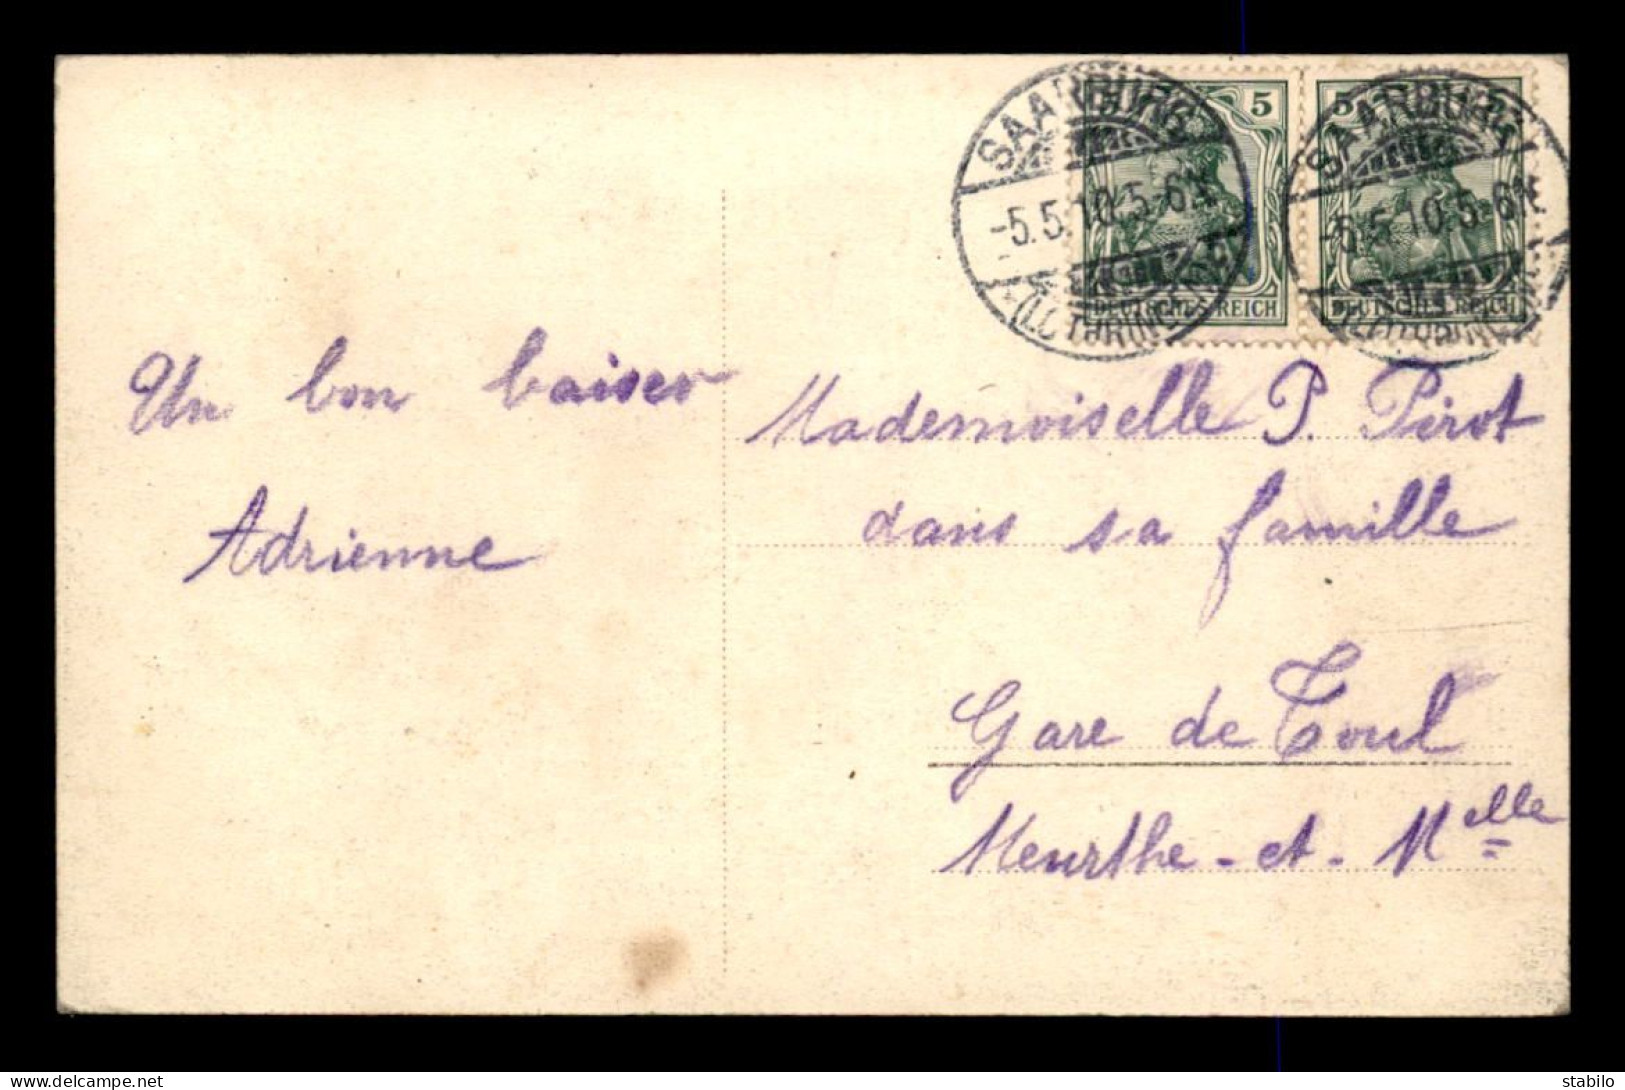 SAARBURG
-5.5.10.5-6N.
(LOTHRINGEN)
5
DEUTSCHES REICH
5
DEUTSCHES REICH
SAARBURG
-5.5.10.5-6N.
(LOTHRINGEN)
Un bon baiser
Adrienne
Mademoiselle P. Pirot
dans sa famille
Gare de Toul
Meurthe-et-Melle
delcampe.net
stabilo